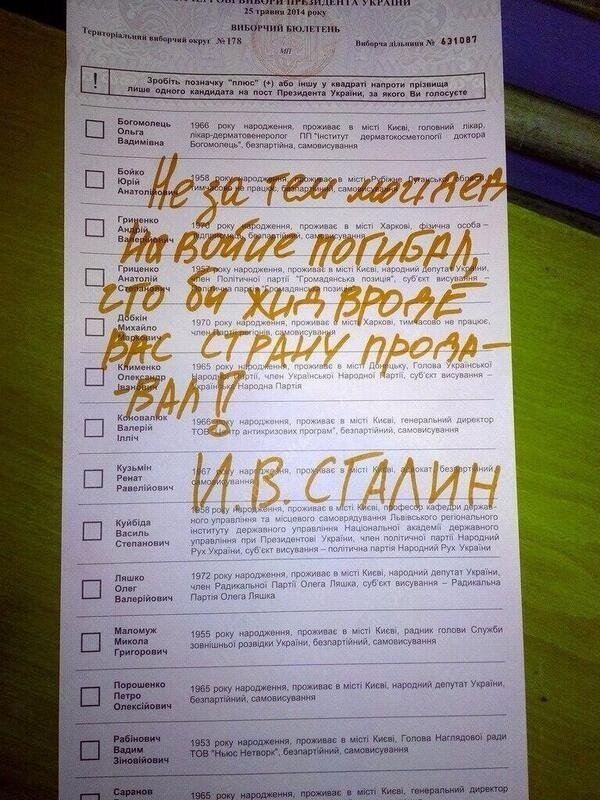 ЧЕРГОВІ ВИБОРИ ПРЕЗИДЕНТА УКРАЇНИ
25 травня 2014 року
ВИБОРЧИЙ БЮЛЕТЕНЬ
Територіальний виборчий округ №178
МП
Виборча дільниця № 631087
! Зробіть позначку "плюс" (+) або іншу у квадраті напроти прізвища
лише одного кандидата на пост Президента України, за якого Ви голосуєте
Богомолець
Ольга
Вадимівна
1966 року народження, проживає в місті Києві, головний лікар,
лікар-дерматовенеролог ПП "Інститут дерматокосметології доктора
Богомолець", безпартійна, самовисування
Бойко
Юрій
Анатолійович
1958 року народження, проживає в місті Рубіжне Луганської області,
тимчасово не працює, безпартійний, самовисування
Гриненко
Андрій
Валерійович
1970 року народження, проживає в місті Харкові, фізична особа –
підприємець, безпартійний, самовисування
Гриценко
Анатолій
Степанович
1957 року народження, проживає в місті Києві, народний депутат України,
член Політичної партії "Громадянська позиція", суб'єкт висування –
політична партія "Громадянська позиція"
Добкін
Михайло
Маркович
1970 року народження, проживає в місті Харкові, тимчасово не працює,
член Партії регіонів, самовисування
Клименко
Олександр
Іванович
1965 року народження, проживає в місті Донецьку, Голова Української
Народної Партії, член Української Народної Партії, суб'єкт висування –
Українська Народна Партія
Коновалюк
Валерій
Ілліч
1966 року народження, проживає в місті Києві, генеральний директор
ТОВ "Центр антикризових програм", безпартійний, самовисування
Кузьмін
Ренат
Равелійович
1967 року народження, проживає в місті Києві, адвокат, безпартійний,
самовисування
Куйбіда
Василь
Степанович
1958 року народження, проживає в місті Києві, професор кафедри держав-
ного управління та місцевого самоврядування Львівського регіонального
інституту державного управління Національної академії державного
управління при Президентові України, член політичної партії Народний
Рух України, суб'єкт висування – політична партія Народний Рух України
Ляшко
Олег
Валерійович
1972 року народження, проживає в місті Києві, народний депутат України,
член Радикальної Партії Олега Ляшка, суб'єкт висування – Радикальна
Партія Олега Ляшка
Маломуж
Микола
Григорович
1955 року народження, проживає в місті Києві, радник голови Служби
зовнішньої розвідки України, безпартійний, самовисування
Порошенко
Петро
Олексійович
1965 року народження, проживає в місті Києві, народний депутат України,
безпартійний, самовисування
Рабінович
Вадим
Зіновійович
1953 року народження, проживає в місті Києві, Голова Наглядової ради
ТОВ "Ньюс Нетворк", безпартійний, самовисування
Саранов
1965 року народження, проживає в місті Києві, генеральний директор
Не за тем мой дед
на войне погибал,
что бы жид вроде
вас страну прода-
-вал!
И.В. СТАЛИН